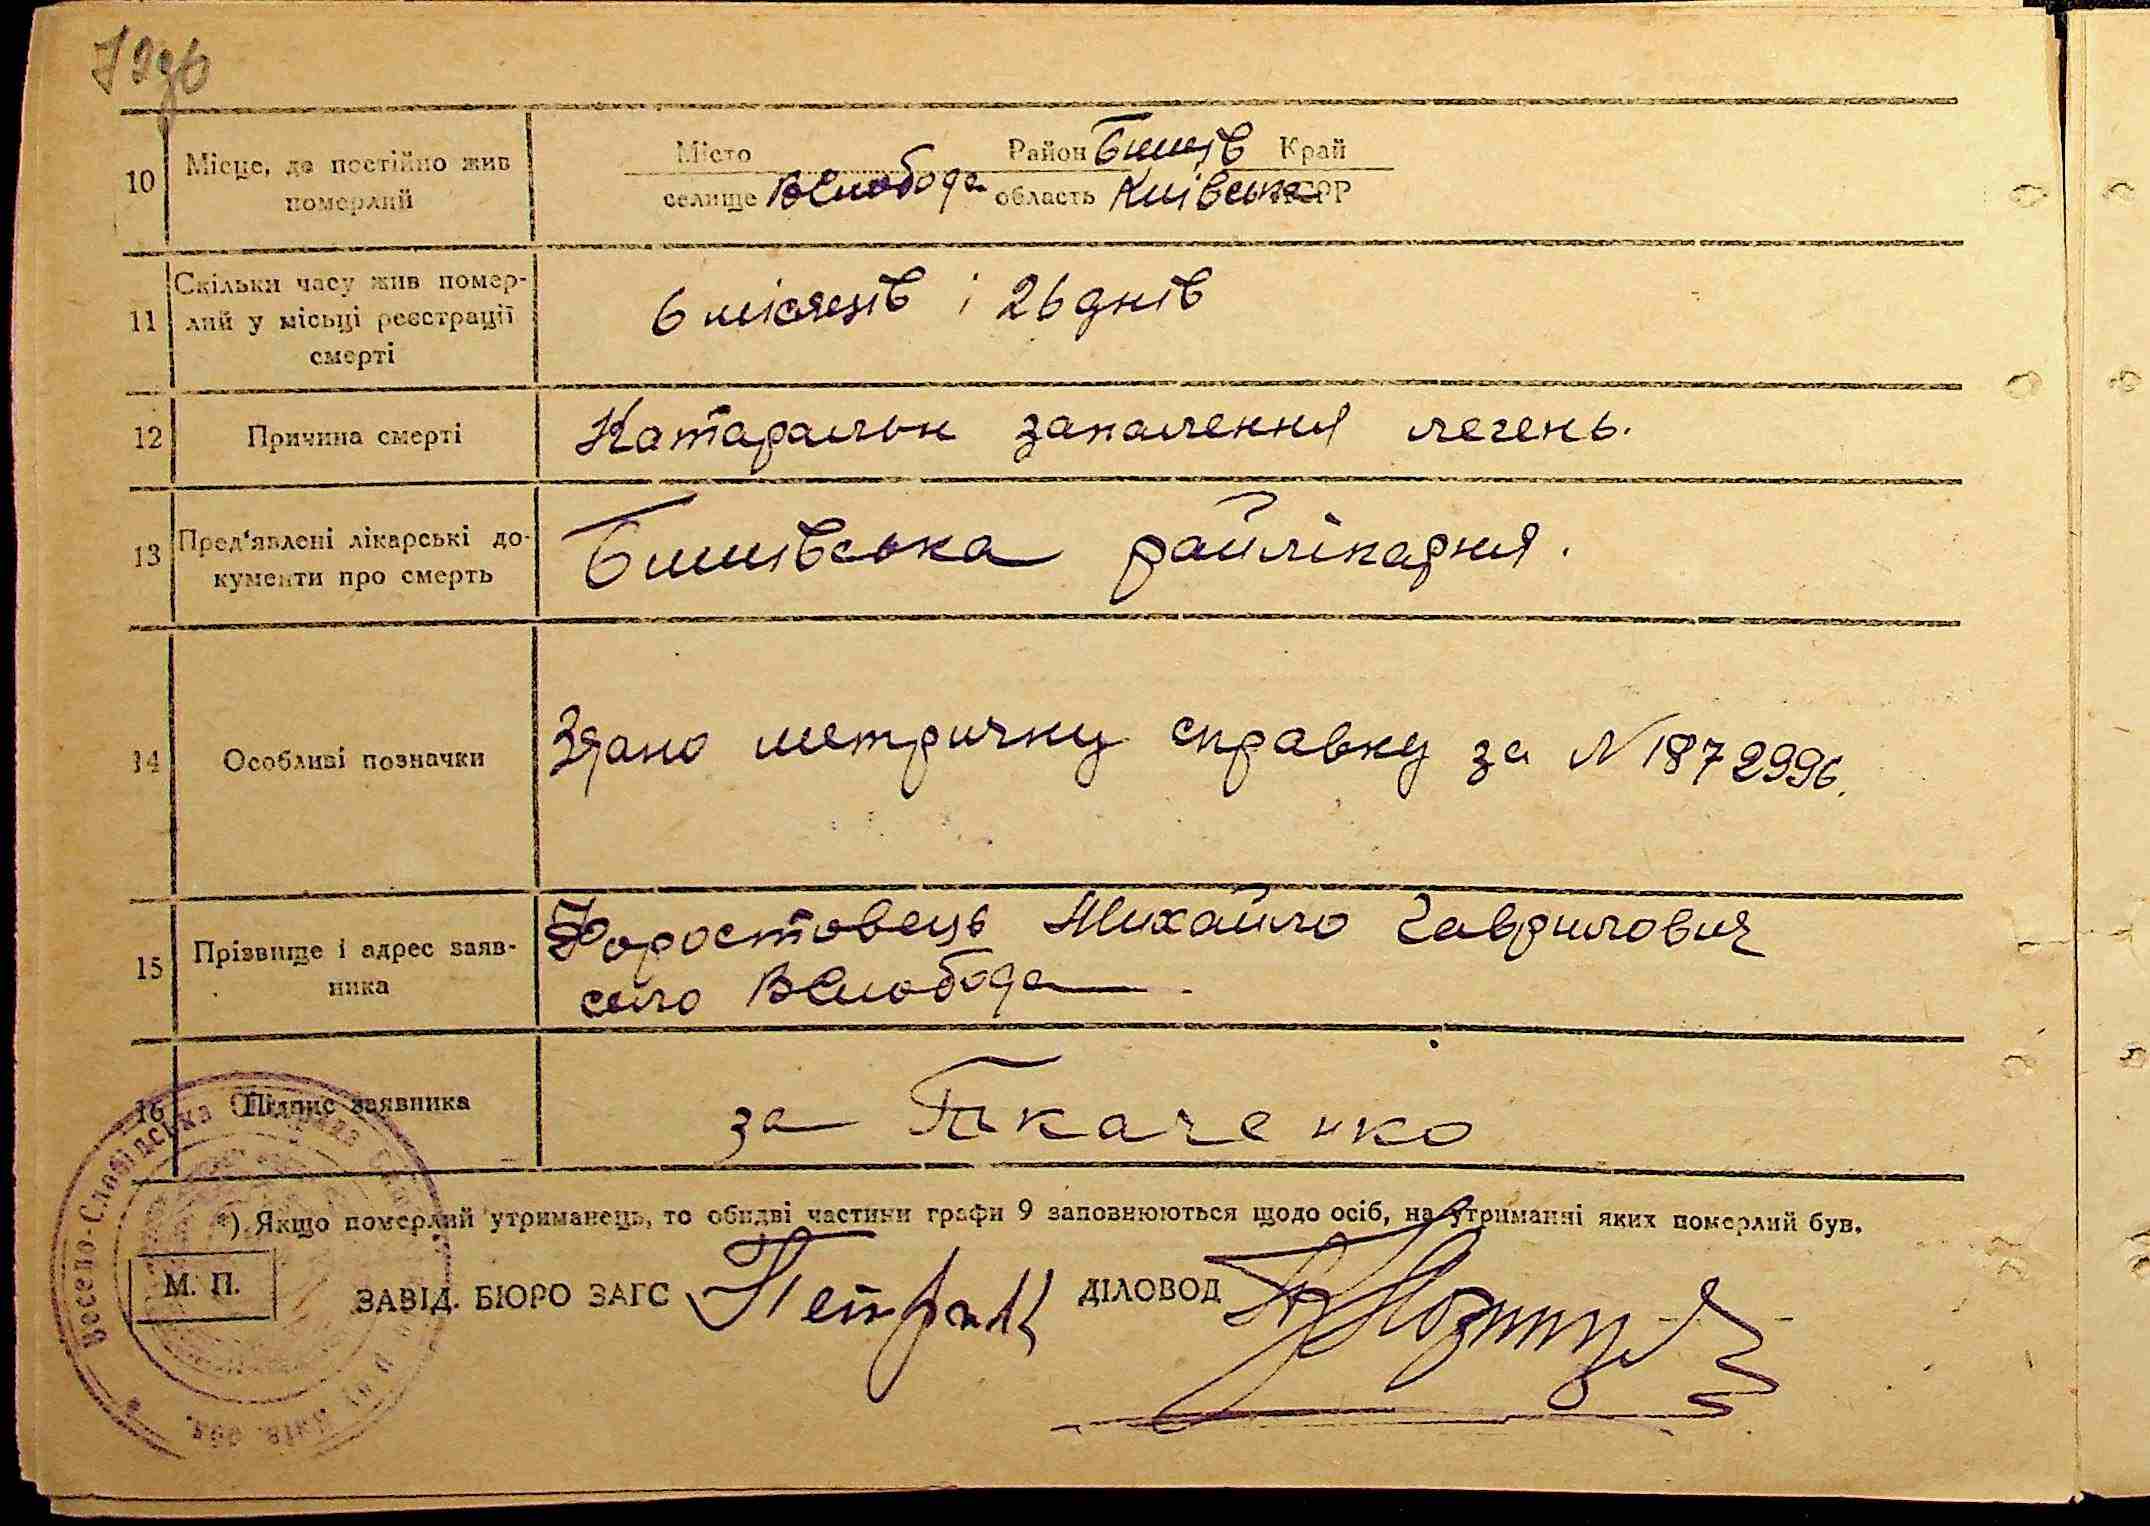 79зв
10 Місце, де постійно жив померлий
Місто Район Бишів Край
селище ВСлобода область Київська РСРР
11 Скільки часу жив помер-
лий у місьці реєстрації
смерті
6 місяців і 26 днів
12 Причина смерті
Катаральн запалення легень.
13 Пред'явлені лікарські до-
кументи про смерть
Бишівська райлікарня.
14 Особливі позначки
Здано метричну справку за N 1872996.
15 Прізвище і адрес заяв-
ника
Форостовець Михайло Гаврилович
село ВСлобода
16 Підпис заявника
за Ткаченко
*) Якщо померлий утриманець, то обидві частини графи 9 заповнюються щодо осіб, на утриманні яких померлий був.
М. П.
ЗАВІД. БЮРО ЗАГС ДІЛОВОД
Весело-Слобідська Київ. обл.